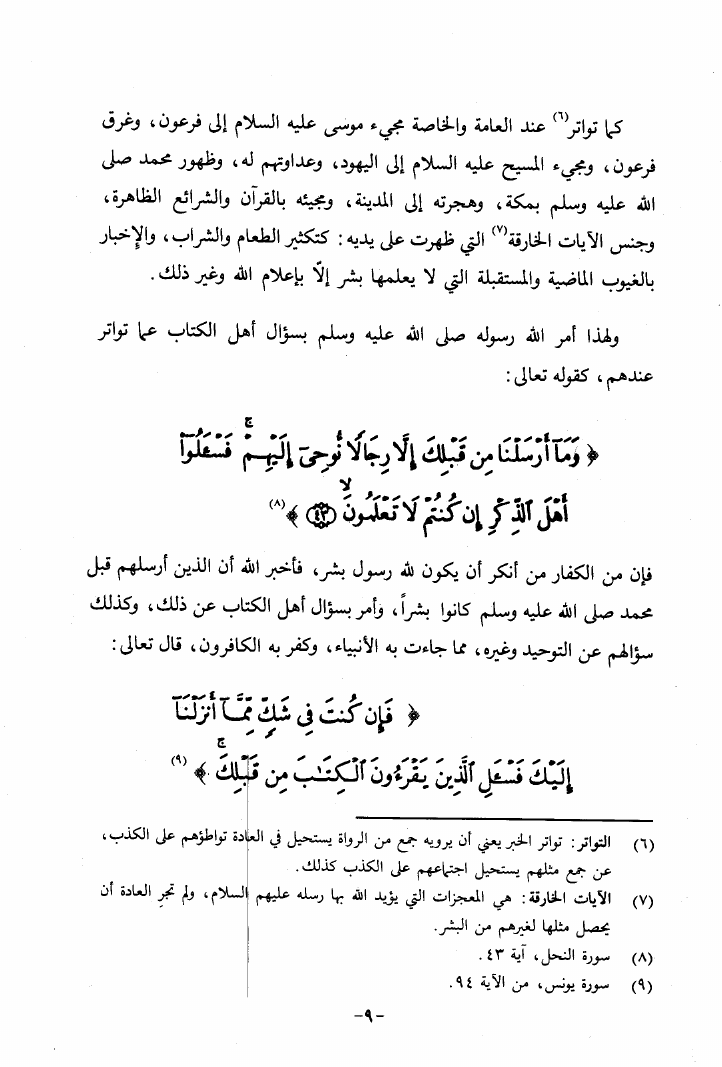 كما تواتر(٦) عند العامة والخاصة مجيء موسى عليه السلام إلى فرعون، وغرق
فرعون، ومجيء المسيح عليه السلام إلى اليهود، وعداوتهم له، وظهور محمد صلى
الله عليه وسلم بمكة، وهجرته إلى المدينة، ومجيئه بالقرآن والشرائع الظاهرة،
وجنس الآيات الخارقة(٧) التي ظهرت على يديه: كتكثير الطعام والشراب، والإخبار
بالغيوب الماضية والمستقبلة التي لا يعلمها بشر إلّا بإعلام الله وغير ذلك.
ولهذا أمر الله رسوله صلى الله عليه وسلم بسؤال أهل الكتاب عما تواتر
عندهم، كقوله تعالى:
﴿ وَمَآ أَرْسَلْنَا مِن قَبْلِكَ إِلَّا رِجَالًا نُّوحِىٓ إِلَيْهِمْ ۚ فَسْـَٔلُوٓا۟
أَهْلَ ٱلذِّكْرِ إِن كُنتُمْ لَا تَعْلَمُونَ ۙ ٤٣ ﴾(٨)
فإن من الكفار من أنكر أن يكون لله رسول بشر، فأخبر الله أن الذين أرسلهم قبل
محمد صلى الله عليه وسلم كانوا بشراً، وأمر بسؤال أهل الكتاب عن ذلك، وكذلك
سؤالهم عن التوحيد وغيره، مما جاءت به الأنبياء، وكفر به الكافرون، قال تعالى:
﴿ فَإِن كُنتَ فِى شَكٍّ مِّمَّآ أَنزَلْنَآ
إِلَيْكَ فَسْـَٔلِ ٱلَّذِينَ يَقْرَءُونَ ٱلْكِتَٰبَ مِن قَبْلِكَ ۚ ﴾(٩)
(٦) التواتر: تواتر الخبر يعني أن يرويه جمع من الرواة يستحيل في العادة تواطؤهم على الكذب،
عن جمع مثلهم يستحيل اجتماعهم على الكذب كذلك.
(٧) الآيات الخارقة: هي المعجزات التي يؤيد الله بها رسله عليهم السلام، ولم تجرِ العادة أن
يحصل مثلها لغيرهم من البشر.
(٨) سورة النحل، آية ٤٣.
(٩) سورة يونس، من الآية ٩٤.
-٩-